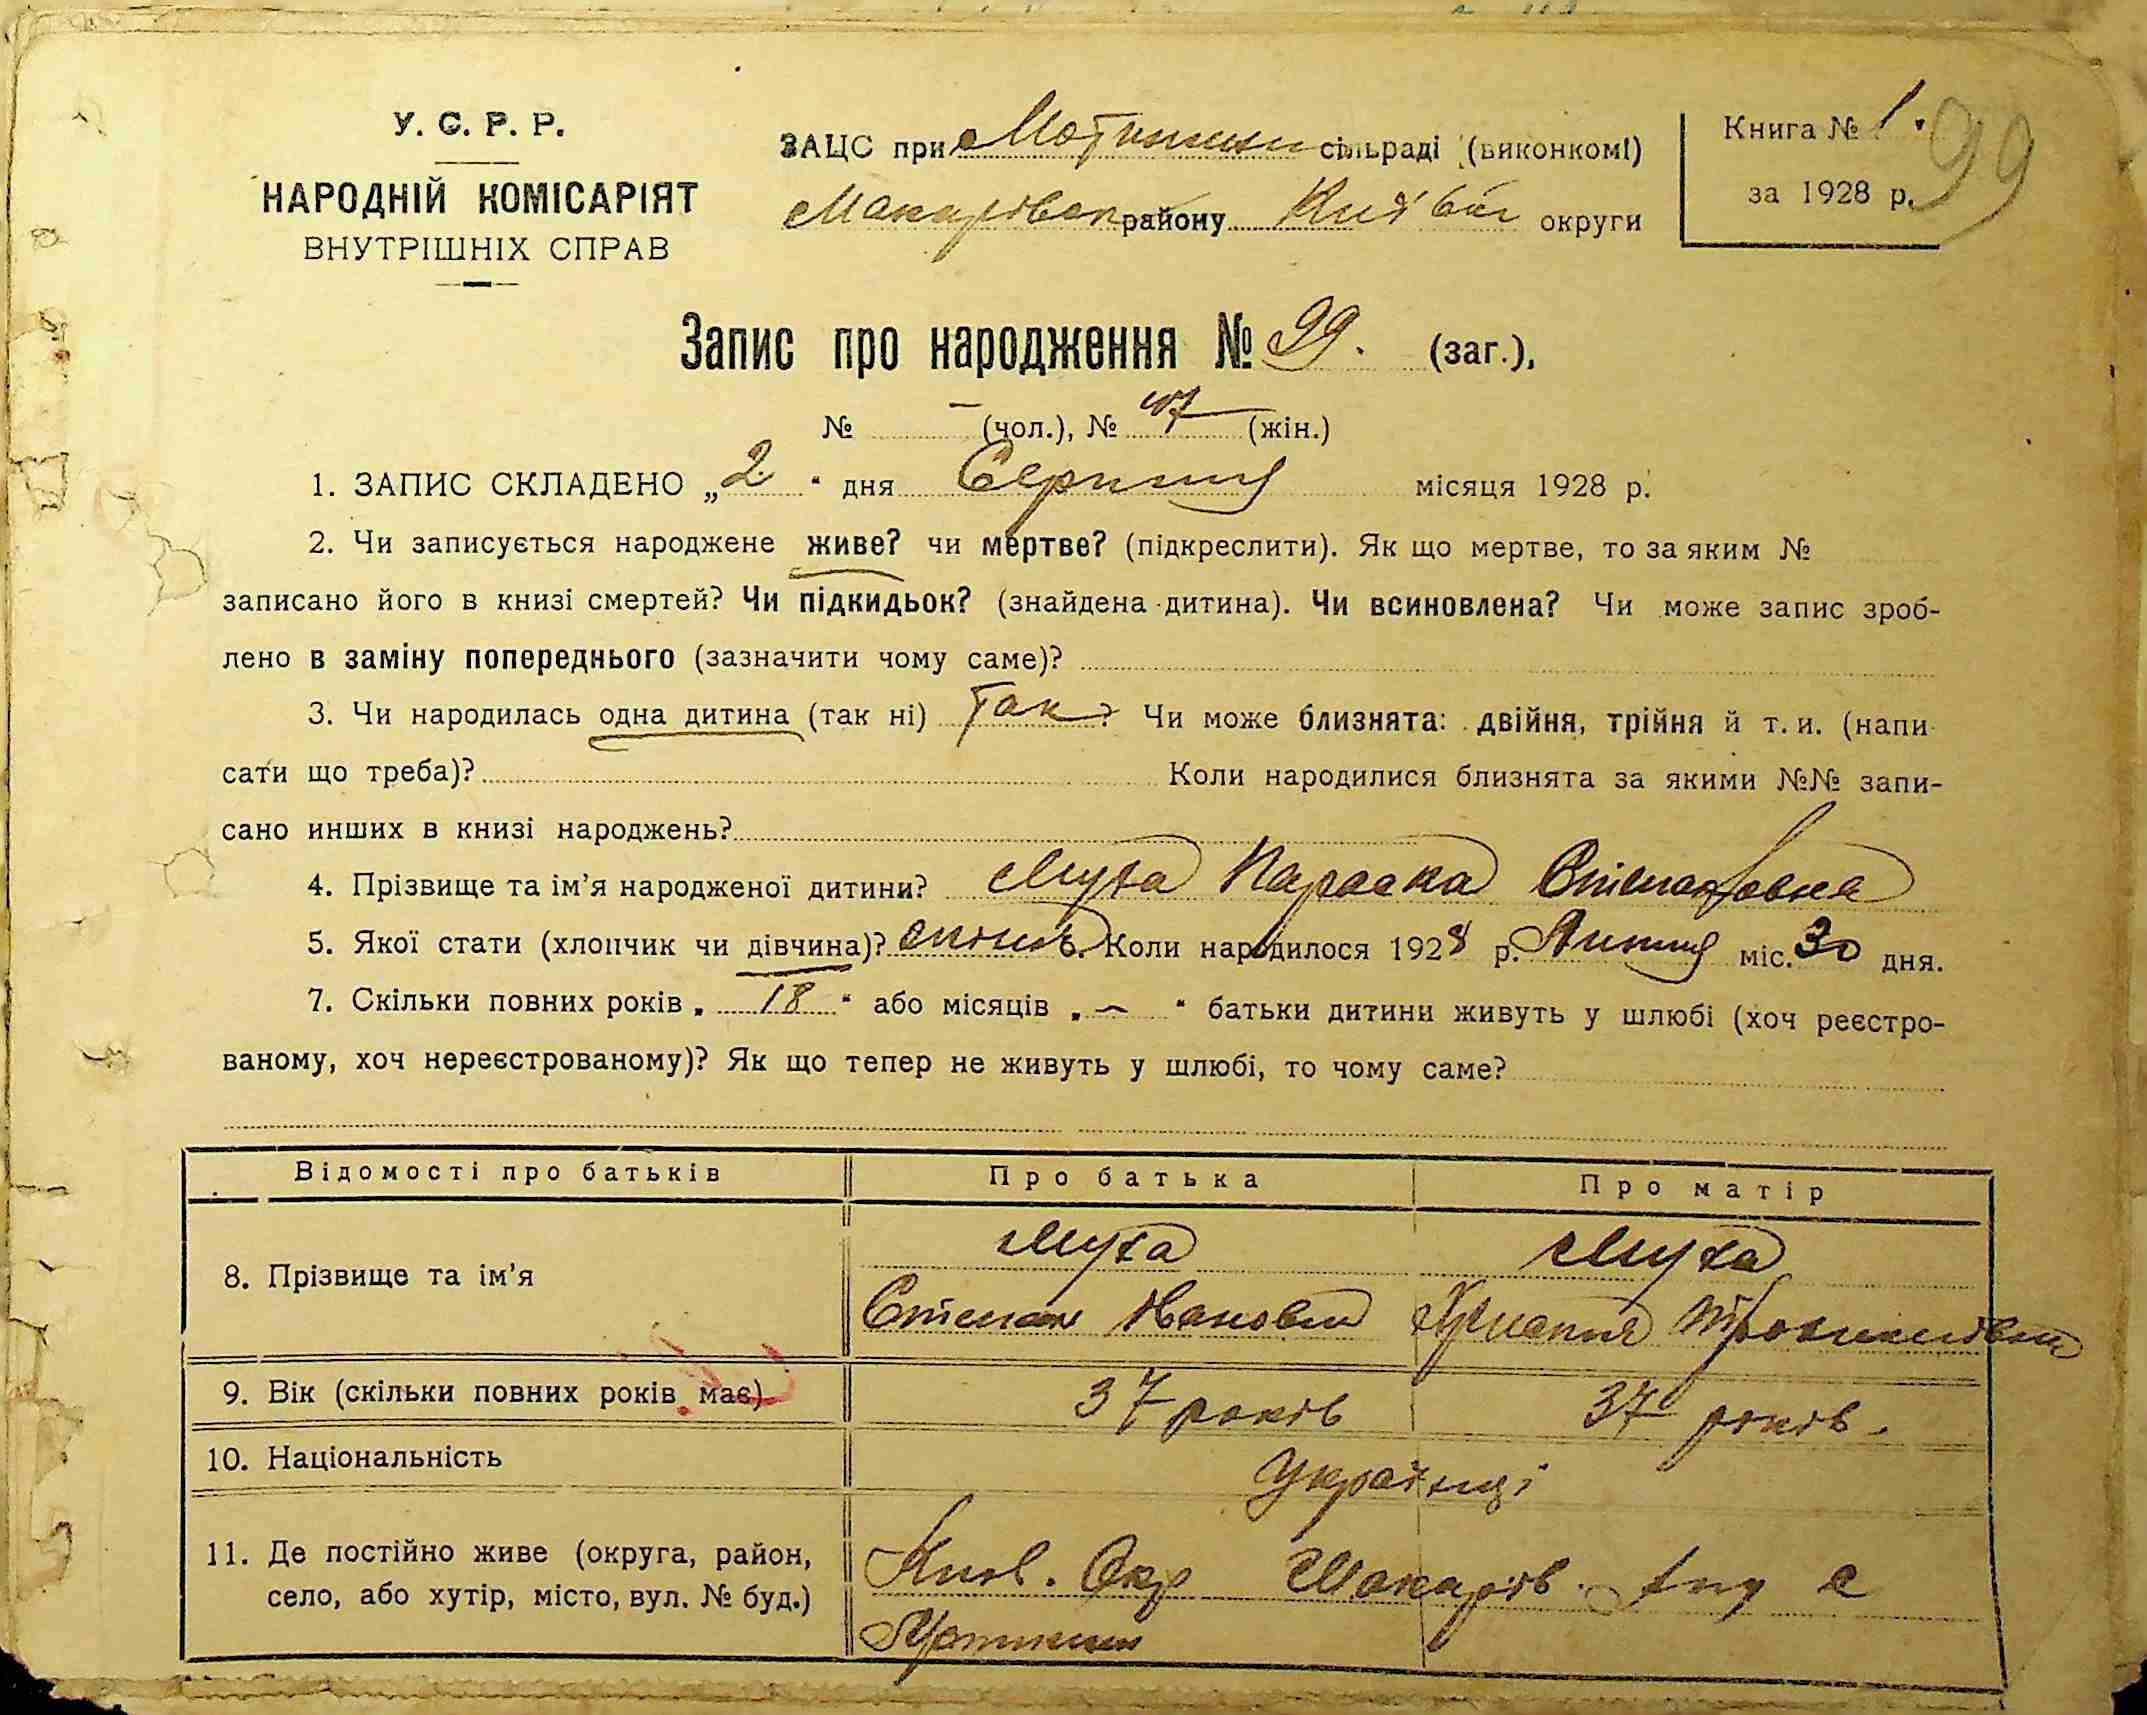 У. С. Р. Р.
НАРОДНІЙ КОМІСАРІЯТ
ВНУТРІШНІХ СПРАВ
ЗАЦС при Мотижин сільраді (виконкомі)
Макарівск району Київськ округи
Книга № 1. 99
за 1928 р.
Запис про народження № 99. (заг.),
№ – (чол.), № 47 (жін.)
1. ЗАПИС СКЛАДЕНО „2" дня Серпня місяця 1928 р.
2. Чи записується народжене живе? чи мертве? (підкреслити). Як що мертве, то за яким №
записано його в книзі смертей? Чи підкидьок? (знайдена дитина). Чи всиновлена? Чи може запис зроб-
лено в заміну попереднього (зазначити чому саме)?
3. Чи народилась одна дитина (так ні) Так? Чи може близнята: двійня, трійня й т. и. (напи-
сати що треба)? Коли народилися близнята за якими №№ запи-
сано инших в книзі народжень?
4. Прізвище та ім'я народженої дитини? Муха Параска Степановна
5. Якої стати (хлопчик чи дівчина)? Коли народилося 1928 р. Липня міс. 30 дня.
7. Скільки повних років „18" або місяців „–" батьки дитини живуть у шлюбі (хоч реєстро-
ваному, хоч нереєстрованому)? Як що тепер не живуть у шлюбі, то чому саме?
Відомості про батьків Про батька Про матір
8. Прізвище та ім'я Муха Муха
Степан Іванови Христина
9. Вік (скільки повних років має) 37 років 37 років.
10. Національність Українці
11. Де постійно живе (округа, район,
село, або хутір, місто, вул. № буд.)
Київ. Окр Макарів. с
Мотижин